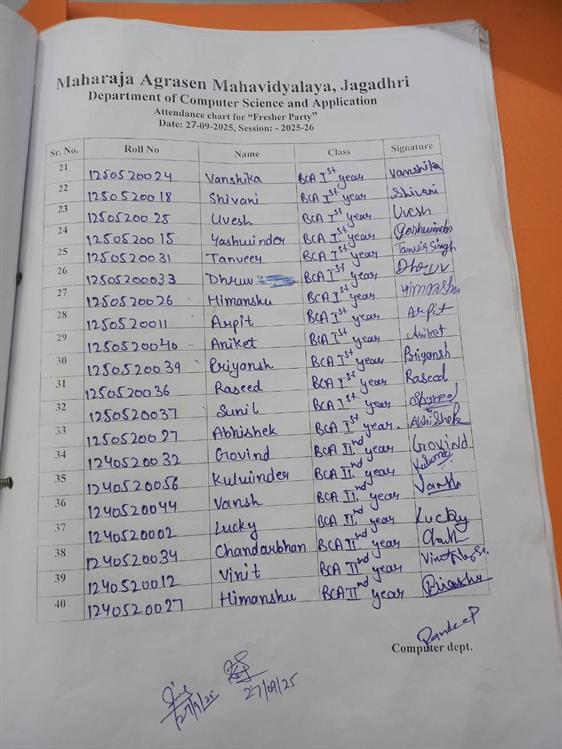 Maharaja Agrasen Mahavidyalaya, Jagadhri
Department of Computer Science and Application
Attendance chart for “Fresher Party”
Date: 27-09-2025, Session: - 2025-26
Sr. No. Roll No Name Class Signature
21 1250520024 Vanshika BCA Ist year Vanshika
22 1250520018 Shivani BCA Ist year Shivani
23 1250520025 Uvesh BCA Ist year Uvesh
24 1250520015 Yashwinder BCA Ist year Yashwinder
25 1250520031 Tanveer BCA Ist year Tanvir Singh
26 12505200033 Dhruv BCA Ist year Dhruv
27 1250520026 Himanshu BCA Ist year Himanshu
28 1250520011 Arpit BCA Ist year Arpit
29 1250520040 Aniket BCA Ist year Aniket
30 1250520039 Priyansh BCA Ist year Priyansh
31 1250520036 Raseed BCA Ist year Raseed
32 1250520037 Sunil BCA Ist year
33 1250520027 Abhishek BCA Ist year. Abhishek
34 1240520032 Govind BCA IInd year Govind
35 1240520056 Kulwinder BCA IInd year
36 1240520044 Vansh BCA IInd year Vansh
37 1240520002 Lucky BCA IInd year Lucky
38 1240520034 Chandarbhan BCA IInd year
39 1240520012 Vinit BCA IInd year
40 1240520027 Himanshu BCA IInd year
Pardeep
Computer dept.
27/9/25
27/09/25